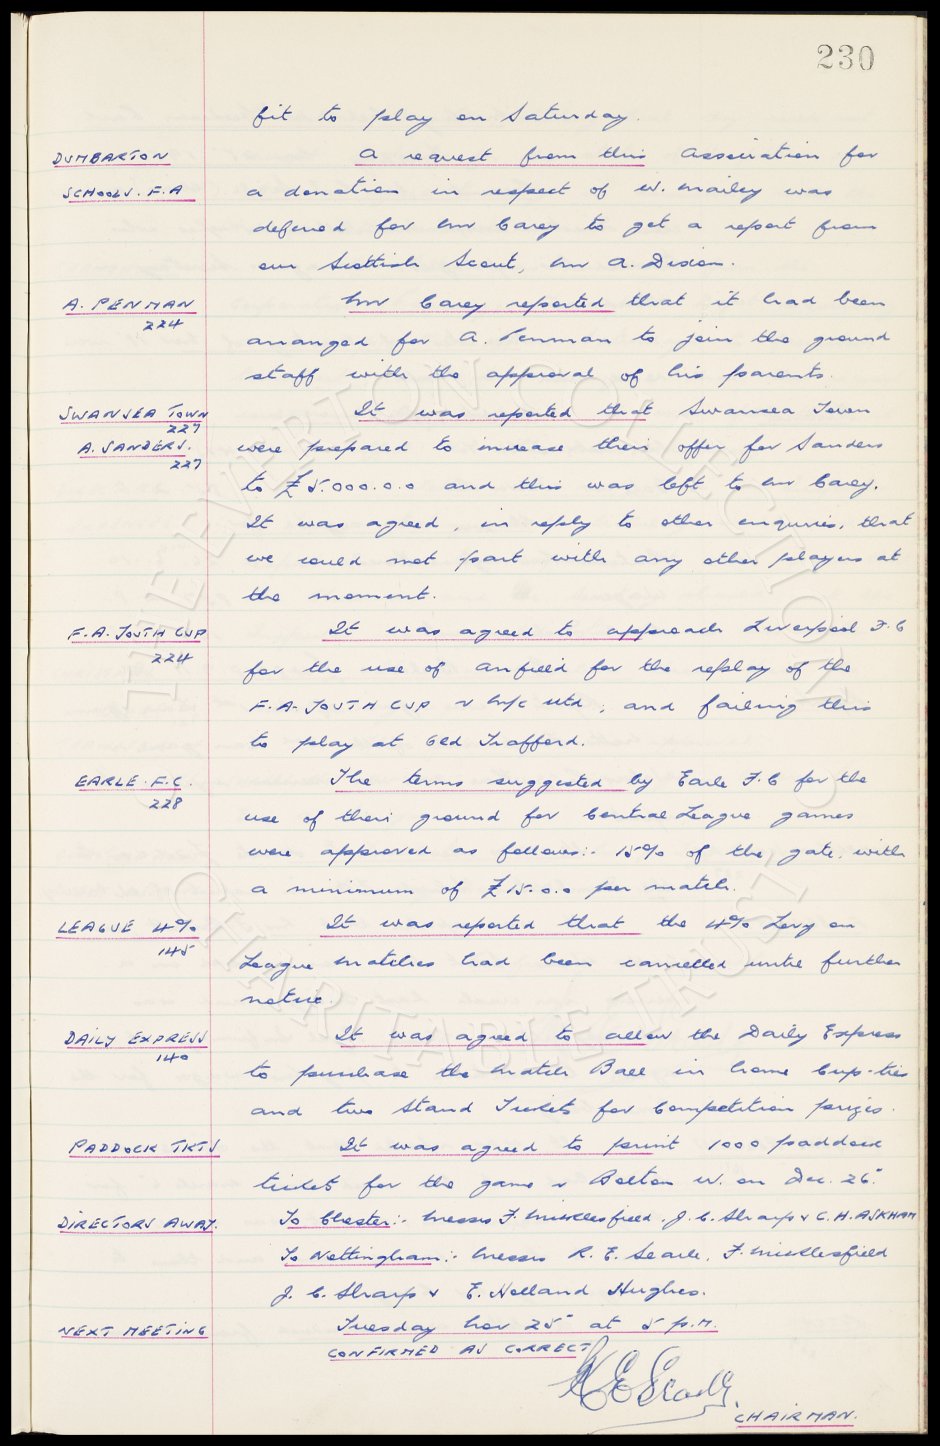 230
fit to play on Saturday.
DUMBARTON A request from this Association for
SCHOOLS. F.A a donation in respect of W. Mailey was
deferred for Mr Carey to get a report from
our Scottish Scout, Mr A. Dixon.
A. PENMAN Mr Carey reported that it had been
224 arranged for A. Penman to join the ground
staff with the approval of his parents.
SWANSEA TOWN It was reported that Swansea Town
227
A. SANDERS. were prepared to increase their offer for Sanders
227
to £5.000.0.0 and this was left to Mr Carey.
It was agreed, in reply to other enquiries, that
we could not part with any other players at
the moment.
F.A. YOUTH CUP It was agreed to approach Liverpool F.C
224 for the use of Anfield for the replay of the
F.A. YOUTH CUP v M/c Utd, and failing this
to play at Old Trafford.
EARLE. F.C. The terms suggested by Earle F.C for the
228 use of their ground for Central League games
were approved as follows:- 15% of the gate, with
a minimum of £15.0.0 per match.
LEAGUE 4% It was reported that the 4% Levy on
145 League matches had been cancelled until further
notice.
DAILY EXPRESS It was agreed to allow the Daily Express
140 to purchase the Match Ball in home Cup-ties
and two Stand Tickets for Competition prizes.
PADDOCK TKTS It was agreed to print 1000 paddock
tickets for the game v Bolton W. on Dec. 26"
DIRECTORS AWAY. To Chester:- Messrs F. Micklesfield, J. C. Sharp & C. H. ASKHAM
To Nottingham:- Messrs R. E. Searle, F. Micklesfield
J. C. Sharp & E. Holland Hughes.
NEXT MEETING Tuesday Nov 25" at 5 p.m.
CONFIRMED AS CORRECT
CHAIRMAN.
THE EVERTON COLLECTION
CHARITABLE TRUST